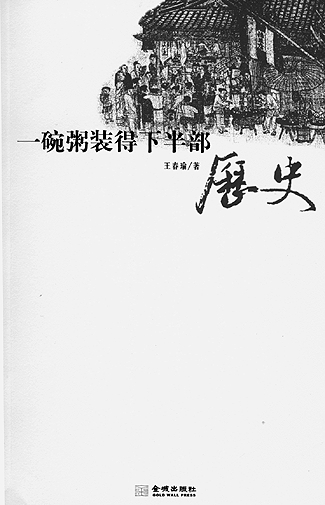 一碗粥装得下半部
歷史
王春瑜/著
金城出版社
GOLD WALL PRESS